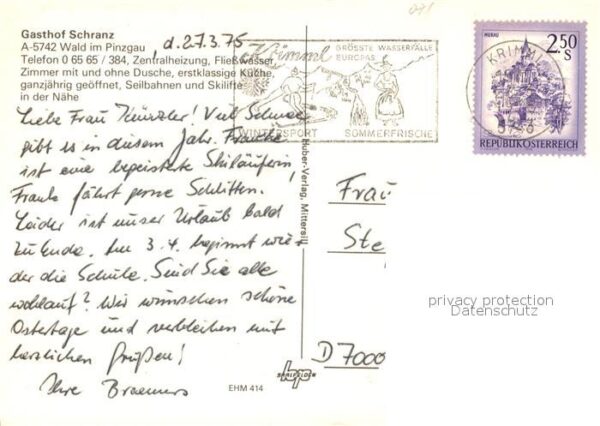 Gasthof Schranz
A-5742 Wald im Pinzgau
Telefon 0 65 65 / 384, Zentralheizung, Fließwasser,
Zimmer mit und ohne Dusche, erstklassige Küche,
ganzjährig geöffnet, Seilbahnen und Skilifte
in der Nähe
, d. 27.3.75
Liebe Frau Künzler! Viel Schnee
gibt es in diesem Jahr.
ist eine begeisterte Skiläuferin,
Frank fährt gerne Schlitten.
Leider ist unser Urlaub bald
zu Ende. Am 3.4. beginnt wie-
der die Schule. Sind Sie alle
wohlauf? Wir wünschen schöne
Ostertage und verbleiben mit
herzlichen Grüßen!
Ihre
Krimml
GRÖSSTE WASSERFÄLLE
EUROPAS
WINTERSPORT SOMMERFRISCHE
KRIMML
MURAU
2.50
S
REPUBLIK ÖSTERREICH
Huber-Verlag, Mittersill
Frau
Ste
D 7000
privacy protection
Datenschutz
SAALFELDEN
EHM 414